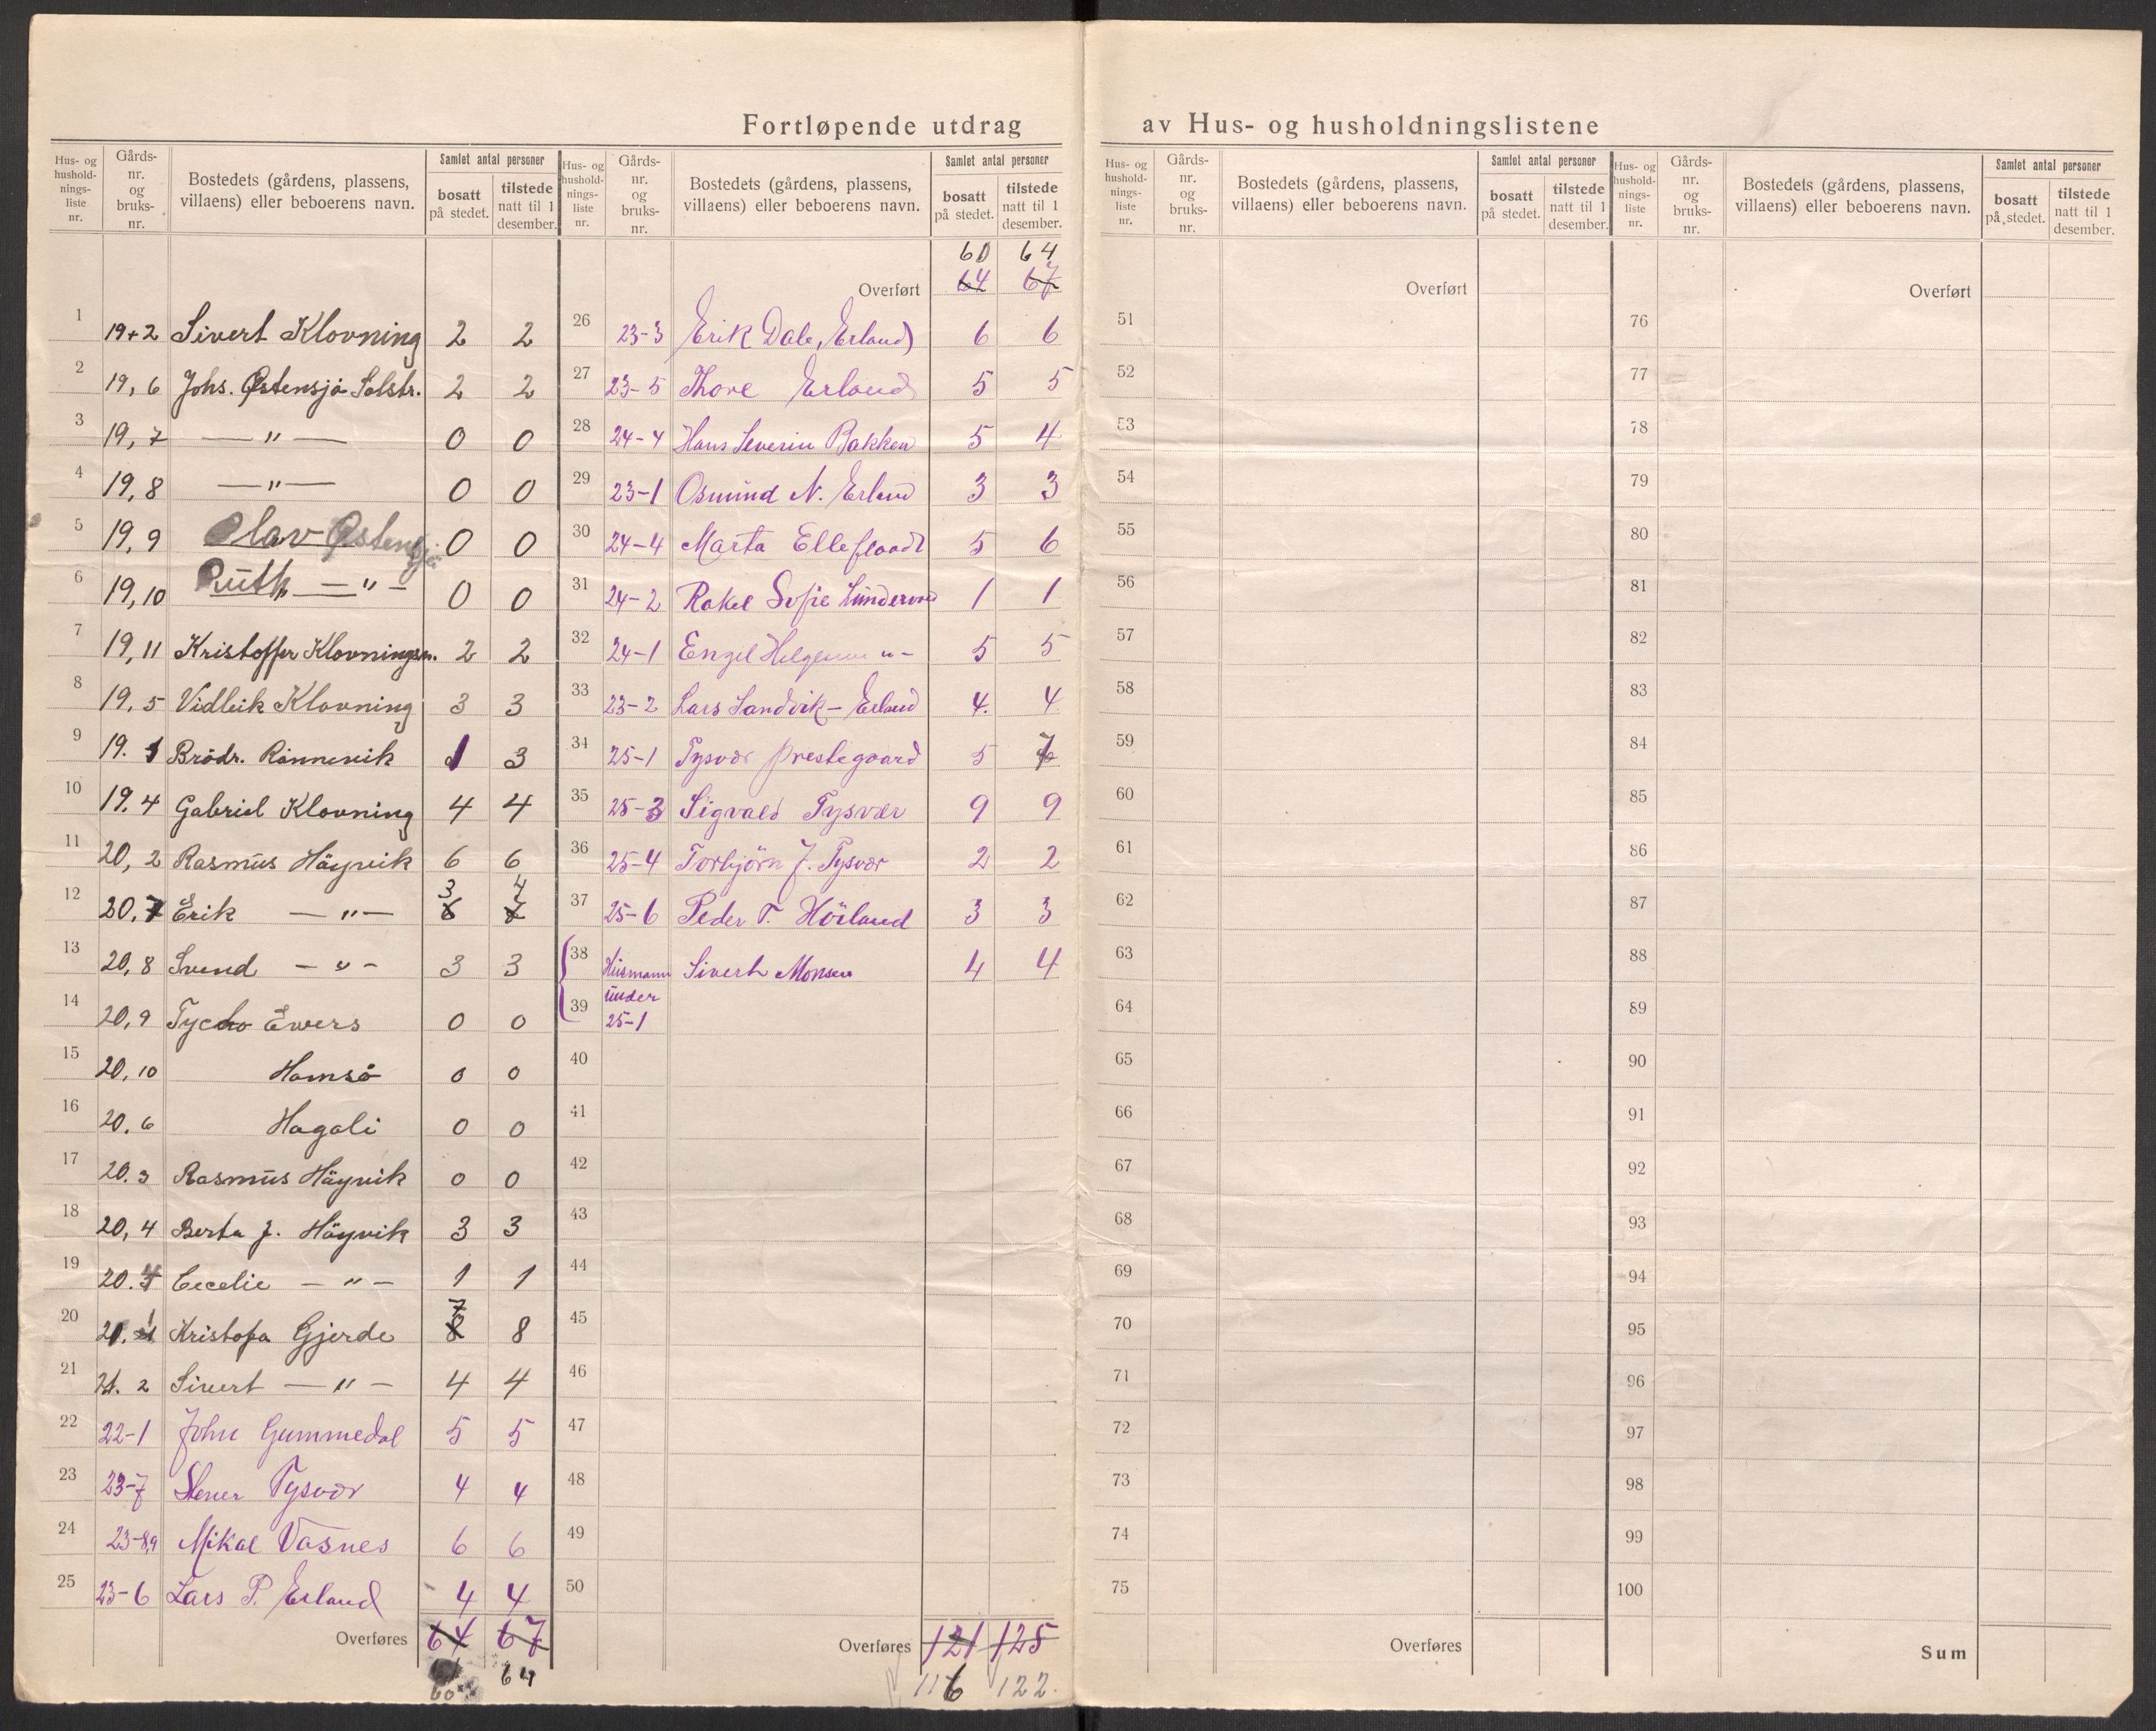 Fortløpende utdrag av Hus- og husholdningslistene
Hus- og husholdningsliste nr. | Gårds-nr. og bruks-nr. | Bostedets (gårdens, plassens, villaens) eller beboerens navn. | Samlet antal personer: bosatt på stedet. | tilstede natt til 1 desember.
1 19+2 Sivert Klovning 2 2
2 19,6 Johs. Østensjø Solstr. 2 2
3 19,7 — " — 0 0
4 19,8 — " — 0 0
5 19,9 Olav Østensjø 0 0
6 19,10 Ruth — " — 0 0
7 19,11 Kristoffer Klovningsm. 2 2
8 19,5 Vidleik Klovning 3 3
9 19.1 Brødr. Rønnevik 1 3
10 19.4 Gabriel Klovning 4 4
11 20,2 Rasmus Høyvik 6 6
12 20,7 Erik — " — 3 4
13 20,8 Svend — " — 3 3
14 20,9 Tycho Ewers 0 0
15 20,10 Hamsø 0 0
16 20.6 Hagali 0 0
17 20.3 Rasmus Høyvik 0 0
18 20,4 Berta J. Høyvik 3 3
19 20.4 Cecelie — " — 1 1
20 21.1 Kristofa Gjerde 8 7 8
21 21.2 Sivert — " — 4 4
22 22-1 John Gummedal 5 5
23 23-7 Stener Tysvær 4 4
24 23-8,9 Mikal Vasnes 6 6
25 23-6 Lars P. Erland 4 4
Overføres 64 67
60 64
Hus- og husholdningsliste nr. | Gårds-nr. og bruks-nr. | Bostedets (gårdens, plassens, villaens) eller beboerens navn. | Samlet antal personer: bosatt på stedet. | tilstede natt til 1 desember.
60 64
Overført 64 67
26 23-3 Erik Dale, Erland 6 6
27 23-5 Thore Erland 5 5
28 24-4 Hans Severin Bakken 5 4
29 23-1 Osmund N. Erland 3 3
30 24-4 Marta Elleflaadt 5 6
31 24-2 Rakel Sofie Lundervold 1 1
32 24-1 Engel Helgesen " - 5 5
33 23-2 Lars Sandvik - Erland 4. 4
34 25-1 Tysvær prestegaard 5 7
35 25-3 Sigvald Tysvær 9 9
36 25-4 Torbjørn J. Tysvær 2 2
37 25-6 Peder T. Hörland 3 3
38 Husmann Sivert Monsen 4 4
39 under 25-1
40
41
42
43
44
45
46
47
48
49
50
Overføres 121 125
116 122.
Hus- og husholdningsliste nr. | Gårds-nr. og bruks-nr. | Bostedets (gårdens, plassens, villaens) eller beboerens navn. | Samlet antal personer: bosatt på stedet. | tilstede natt til 1 desember.
Overført
51
52
53
54
55
56
57
58
59
60
61
62
63
64
65
66
67
68
69
70
71
72
73
74
75
Overføres
Hus- og husholdningsliste nr. | Gårds-nr. og bruks-nr. | Bostedets (gårdens, plassens, villaens) eller beboerens navn. | Samlet antal personer: bosatt på stedet. | tilstede natt til 1 desember.
Overført
76
77
78
79
80
81
82
83
84
85
86
87
88
89
90
91
92
93
94
95
96
97
98
99
100
Sum